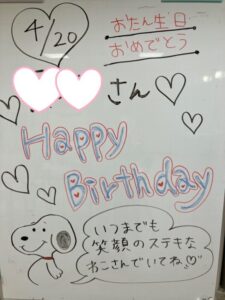 4/20
おたん生日
おめでとう
さん♡
Happy
Birthday
いつまでも
笑顔のステキな
ねこさんでいてね♡